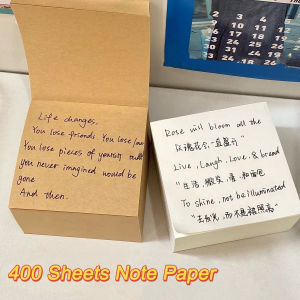 2 3 4
9 10 11
16 17 18
23 24 25
30
Life changes,
You lose friends You lose love
You lose pieces of yourself that
you never imagined would be
gone
And then.
Rose will bloom all the
玫瑰花会一直盛开
Live, Laugh, Love, & bread
"生活,微笑,爱,和面包
To shine, not be illuminated
"去发光,而不是被照亮"
400 Sheets Note Paper